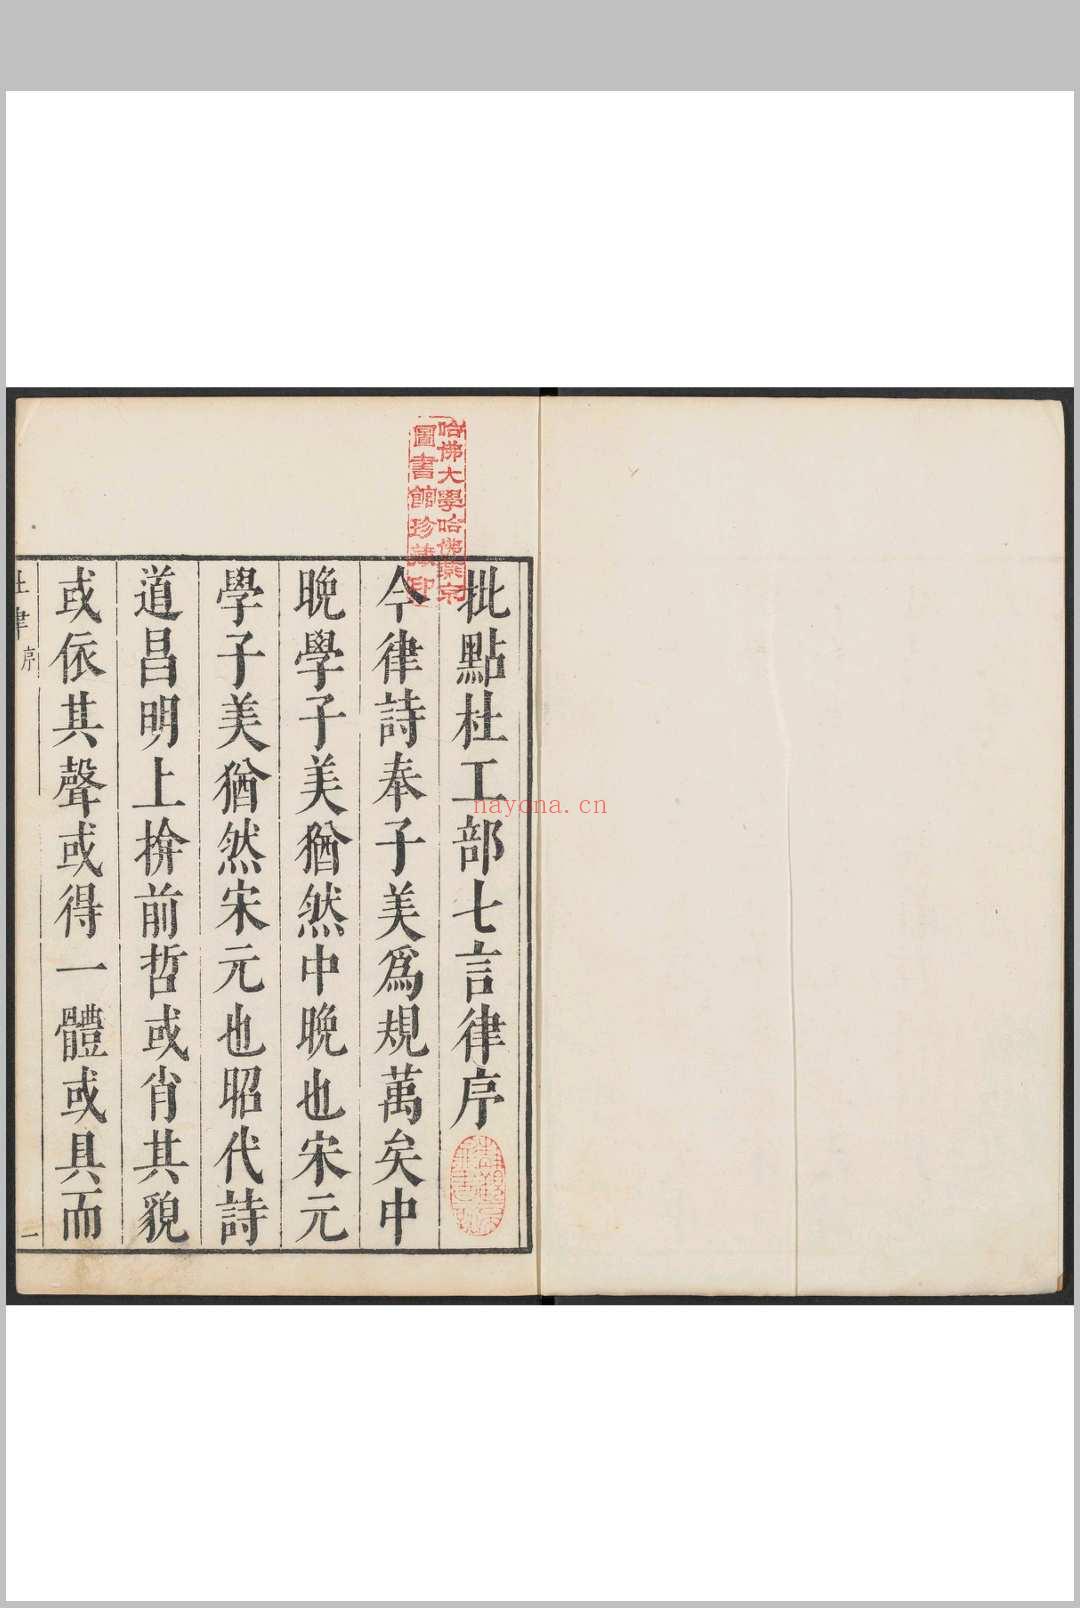 哈佛大學哈佛燕京
圖書館珍藏印
批點杜工部七言律序
今律詩奉子美爲規萬矣中
晚學子美猶然中晚也宋元
學子美猶然宋元也昭代詩
道昌明上揜前哲或肖其貌
或依其聲或得一體或具而
序
一
nayona.cn